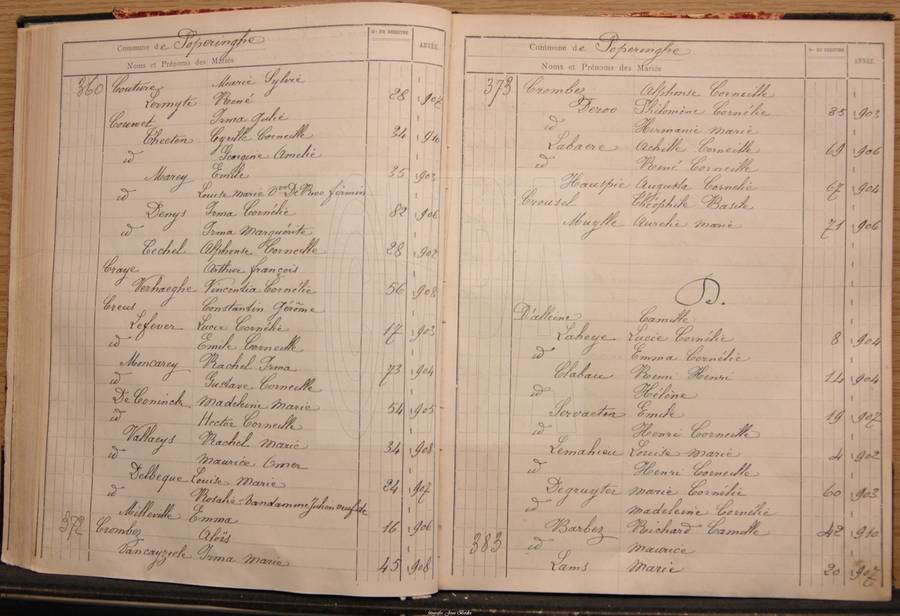 Commune de Poperinghe
Nos DU REGISTRE
ANNÉE.
Noms et Prénoms des Mariés
360 Couture Marie Sylvie
Lermyte René 28 902
Couwet Irma Julie
Theeten Cyrille Corneille 24 910
id Georgine Amelie
Marey Emile 35 903
id Louise Marie Vve De Roo firmin
Denys Irma Cornélie 82 906
id Irma Marguérite
Techel Alphonse Corneille 28 902
Craye Arthur françois
Verhaeghe Vincentia Cornélie 56 908
Creus Constantin Gérôme
Lefever Lucie Cornélie 17 903
id Emile Corneille
Moncarey Rachel Irma 73 904
id Gustave Corneille
De Coninck Madeleine Marie 54 905
id Hector Corneille
Vallaeys Rachel Marie 34 908
id Maurice Omer
Delbeque Louise Marie 24 907
id Rosalie Vandamme
Milleville Emma 16 906
372 Crombez Aloïs
Vancayzeele Irma Marie 45 908
Commune de Poperinghe
Nos DU REGISTRE
ANNÉE.
Noms et Prénoms des Mariés
373 Crombez Alphonse Corneille
Deroo Philomène Cornélie 85 903
id Hermanie Marie
Labaere Achille Corneille 69 906
id René Corneille
Hauspie Augusta Cornélie 67 904
Crousel Théophile Basile
Muylle Aurelie Marie 71 906
D.
D'alleine Camille
Laheye Lucie Cornélie 8 904
id Emma Cornélie
Clabau Remi Henri 14 904
id Hélène
Servaeten Emile 19 907
id Henri Corneille
Lemahieu Louise Marie 4 902
id Henri Corneille
Degruyter Marie Cornélie 60 903
id Madeleine Cornélie
Barbez Richard Camille 42 910
383 id Maurice
Lams Marie 20 907